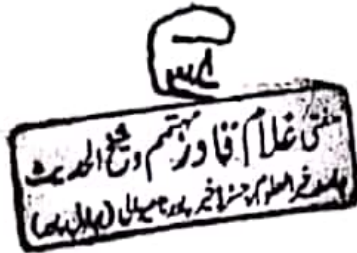 مفتی غلام قادر مہتمم و شیخ الحدیث
جامعہ خیر العلوم رجسٹرڈ خیر پور ٹامیوالی (بہاول پور)